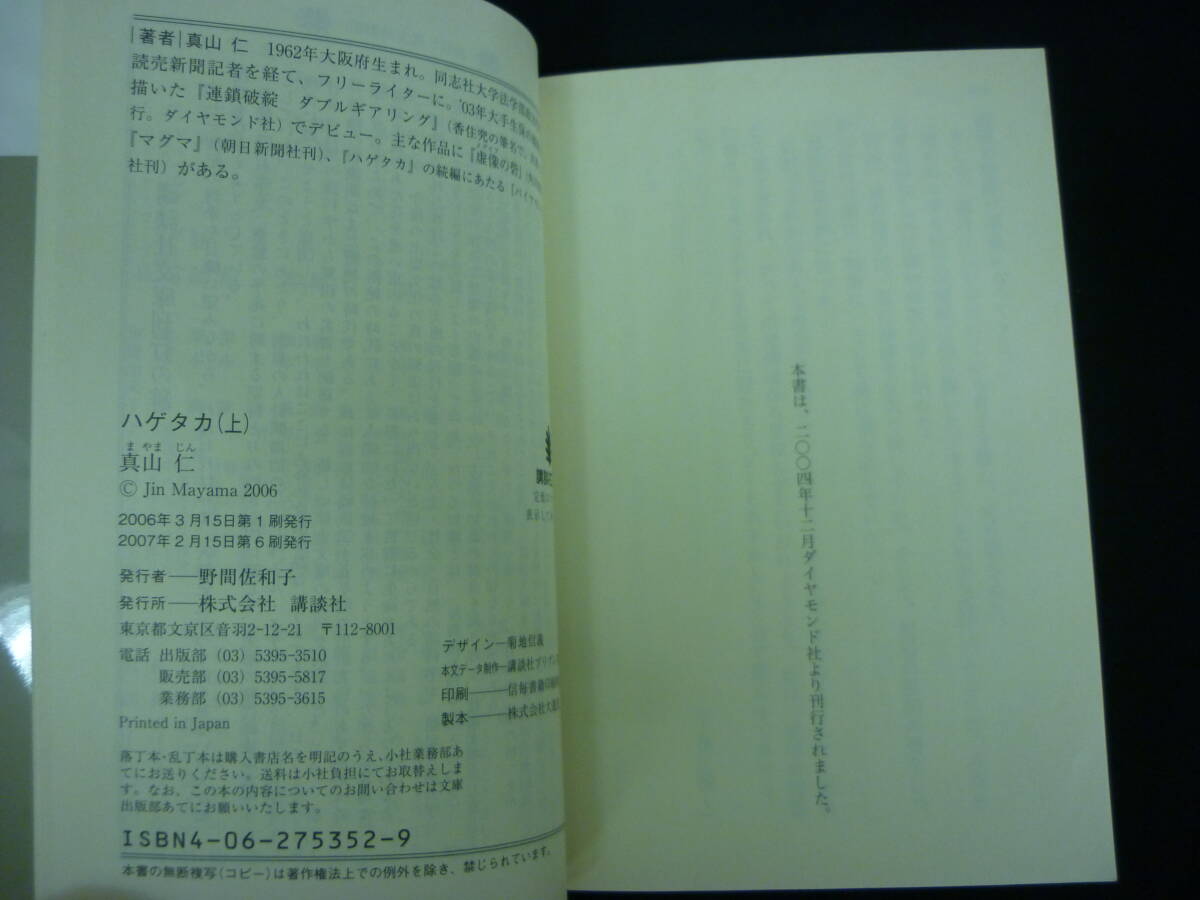 |著者|真山 仁 1962年大阪府生まれ。同志社大学法学部
読売新聞記者を経て、フリーライターに。'03年大手生保の
描いた『連鎖破綻 ダブルギアリング』(香住究の筆名で、
行。ダイヤモンド社)でデビュー。主な作品に『虚像の砦』
『マグマ』(朝日新聞社刊)、『ハゲタカ』の続編にあたる『バイ
社刊)がある。
ハゲタカ(上)
ま やま じん
真山 仁
© Jin Mayama 2006
2006年3月15日第1刷発行
2007年2月15日第6刷発行
発行者――野間佐和子
発行所――株式会社 講談社
東京都文京区音羽2-12-21 〒112-8001
電話 出版部 (03) 5395-3510
販売部 (03) 5395-5817
業務部 (03) 5395-3615
Printed in Japan
デザイン―菊地信義
本文データ制作―講談社プリ
印刷――信毎書籍印刷
製本――株式会社大
落丁本・乱丁本は購入書店名を明記のうえ、小社業務部あ
てにお送りください。送料は小社負担にてお取替えしま
す。なお、この本の内容についてのお問い合わせは文庫
出版部あてにお願いいたします。
ISBN4-06-275352-9
本書の無断複写(コピー)は著作権法上での例外を除き、禁じられています。
本書は、二〇〇四年十二月ダイヤモンド社より刊行されました。